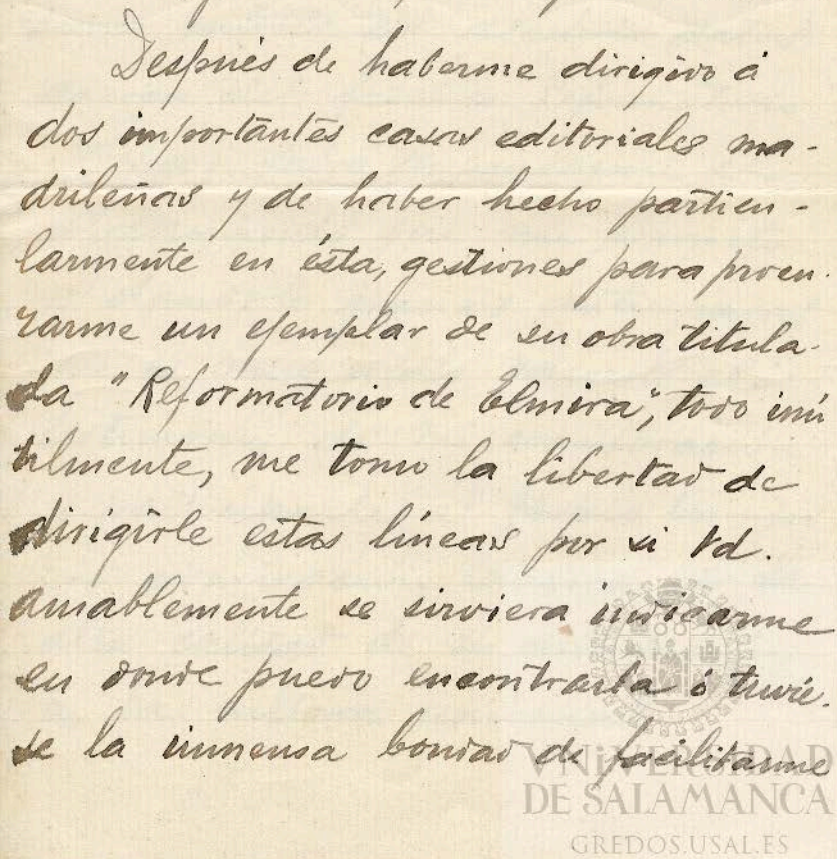 Después de haberme dirigido á
dos importantes casas editoriales ma-
drileñas y de haber hecho particu-
larmente en ésta, gestiones para procu-
rarme un ejemplar de su obra titula-
da "Reformatorio de Elmira", todo inú
tilmente, me tomo la libertad de
dirigirle estas líneas por si Vd.
amablemente se sirviera indicarme
en donde puedo encontrarla ó tuvie-
se la inmensa bondad de facilitarme
VNiVERSiDAD
DE SALAMANCA
GREDOS.USAL.ES